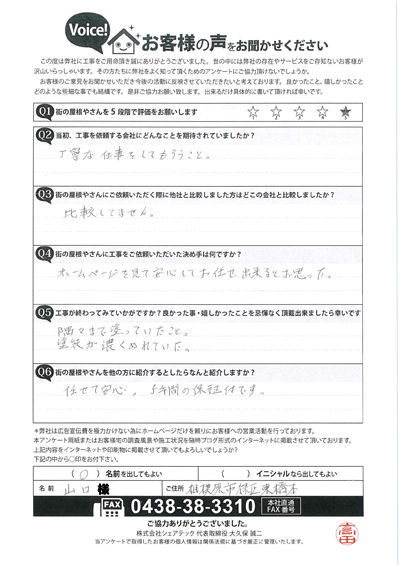 Voice! お客様の声をお聞かせください
この度は弊社に工事をご用命頂き誠にありがとうございました。世の中には弊社の存在やサービスをご存知ないお客様が
沢山いらっしゃいます。その方たちに弊社をよく知って頂くためのアンケートにご協力頂けないでしょうか。
お客様のご意見をお聞かせいただき今後の活動に反映させていただきたいと考えております。良かったこと、嬉しかったこと
どのような些細な事でも結構です。是非ご協力お願い致します。出来るだけ具体的に書いて頂ければ幸いです。
Q1 街の屋根やさんを5段階で評価をお願いします ☆ ☆ ☆ ☆ ★
Q2 当初、工事を依頼する会社にどんなことを期待されていましたか？
丁寧な仕事をしてもらうこと。
Q3 街の屋根やさんにご依頼いただく際に他社と比較しました方はどこの会社と比較しましたか？
比較してません。
Q4 街の屋根やさんに工事をご依頼いただいた決め手は何ですか？
ホームページを見て安心してお任せ出来るとお思った。
Q5 工事が終わってみていかがですか？良かった事・嬉しかったことを忌憚なく頂戴出来ましたら幸いです
隅々まで塗っていたこと。
塗装が濃くぬれていた。
Q6 街の屋根やさんを他の方に紹介するとしたらなんと紹介しますか？
任せて安心。5年間の保証付です。
＊弊社は広告宣伝費を極力かけない為にホームページだけを頼りにお客様への営業活動を行っております。
本アンケート用紙またはお客様宅の調査風景や施工状況を随時ブログ形式のインターネットに掲載させて頂いております。
上記内容をインターネットや印刷物に掲載させて頂いてもよろしいでしょうか？
下記の中から○印をお付下さい。
（ ○ ）名前を出してもよい （ ）イニシャルなら出してもよい
名前 山口 様 ご住所 相模原市緑区東橋本
FAX 0438-38-3310 本社直通 FAX番号
ご協力ありがとうございました。
株式会社シェアテック 代表取締役 大久保 誠二
当アンケートで取得したお客様の個人情報は関係法規に基づき厳正に管理いたします。